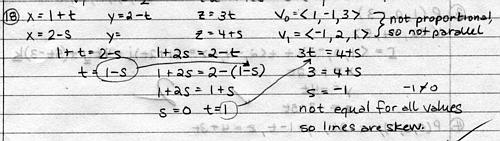 ⑱ x=1+t y=2-t z=3t V₀=<1,-1,3> } not proportional,
x=2-s y= z=4+s V₁=<-1,2,1> so not parallel
1+t=2-s 1+2s=2-t 3t=4+s
t=1-s 1+2s=2-(1-s) 3=4+s
1+2s=1+s s=-1 -1≠0
s=0 t=1 not equal for all values
so lines are skew.